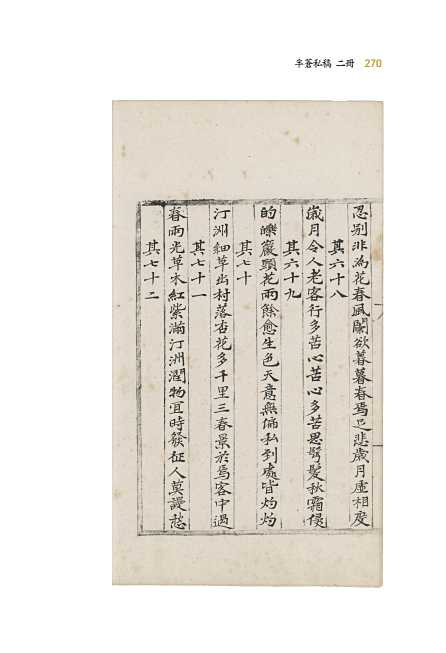 半蒼私稿 二冊 270
忍別非為花春風闌欲暮暮春焉足悲歲月虛相度
其六十八
歲月令人老客行多苦心苦心多苦思鬂髮秋霜侵
其六十九
的皪巖頭花雨餘愈生色天意無偏私到處皆灼灼
其七十
汀洲細草出村落杏花多千里三春景於焉客中過
其七十一
春雨光草木紅紫滿汀洲潤物宜時發征人莫謾愁
其七十二